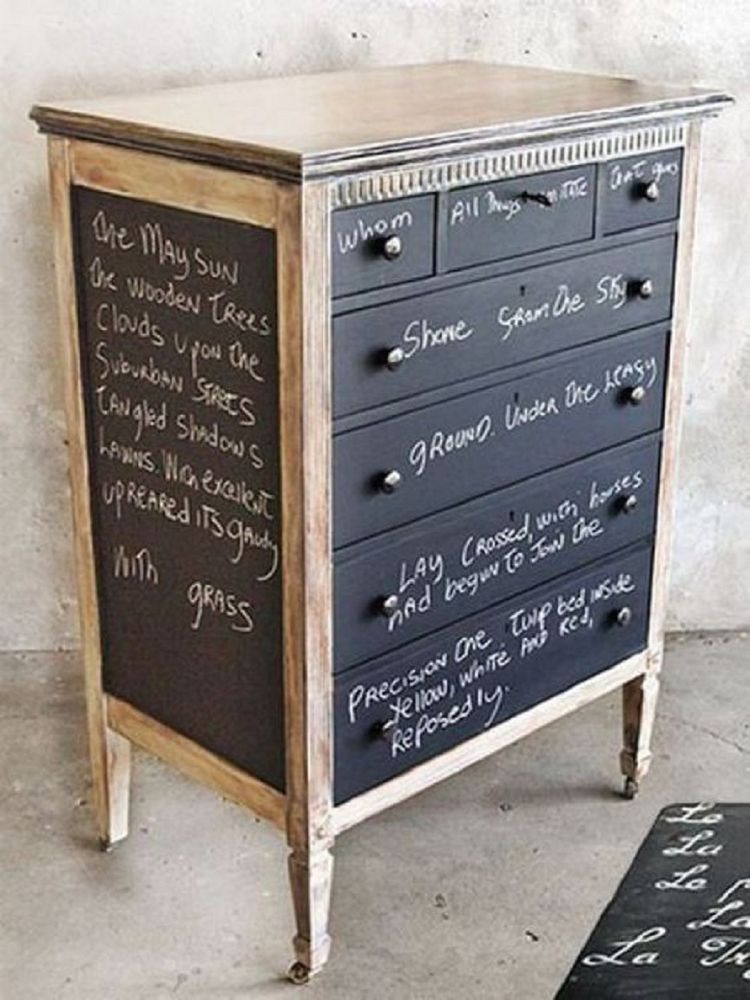 The May Sun
The wooden Trees
Clouds upon the
Suburban Streets
Tangled Shadows
Lawns. With excellent
upreared its gaudy
With
grass
Whom
All Things
imitate
That
Shone from The Sky
GROUND. Under The Leafy
LAY Crossed with horses
had begun To Join The
Precision The Tulip bed inside
Yellow, White AND Red,
Reposedly.
Le
La
Le
La
La